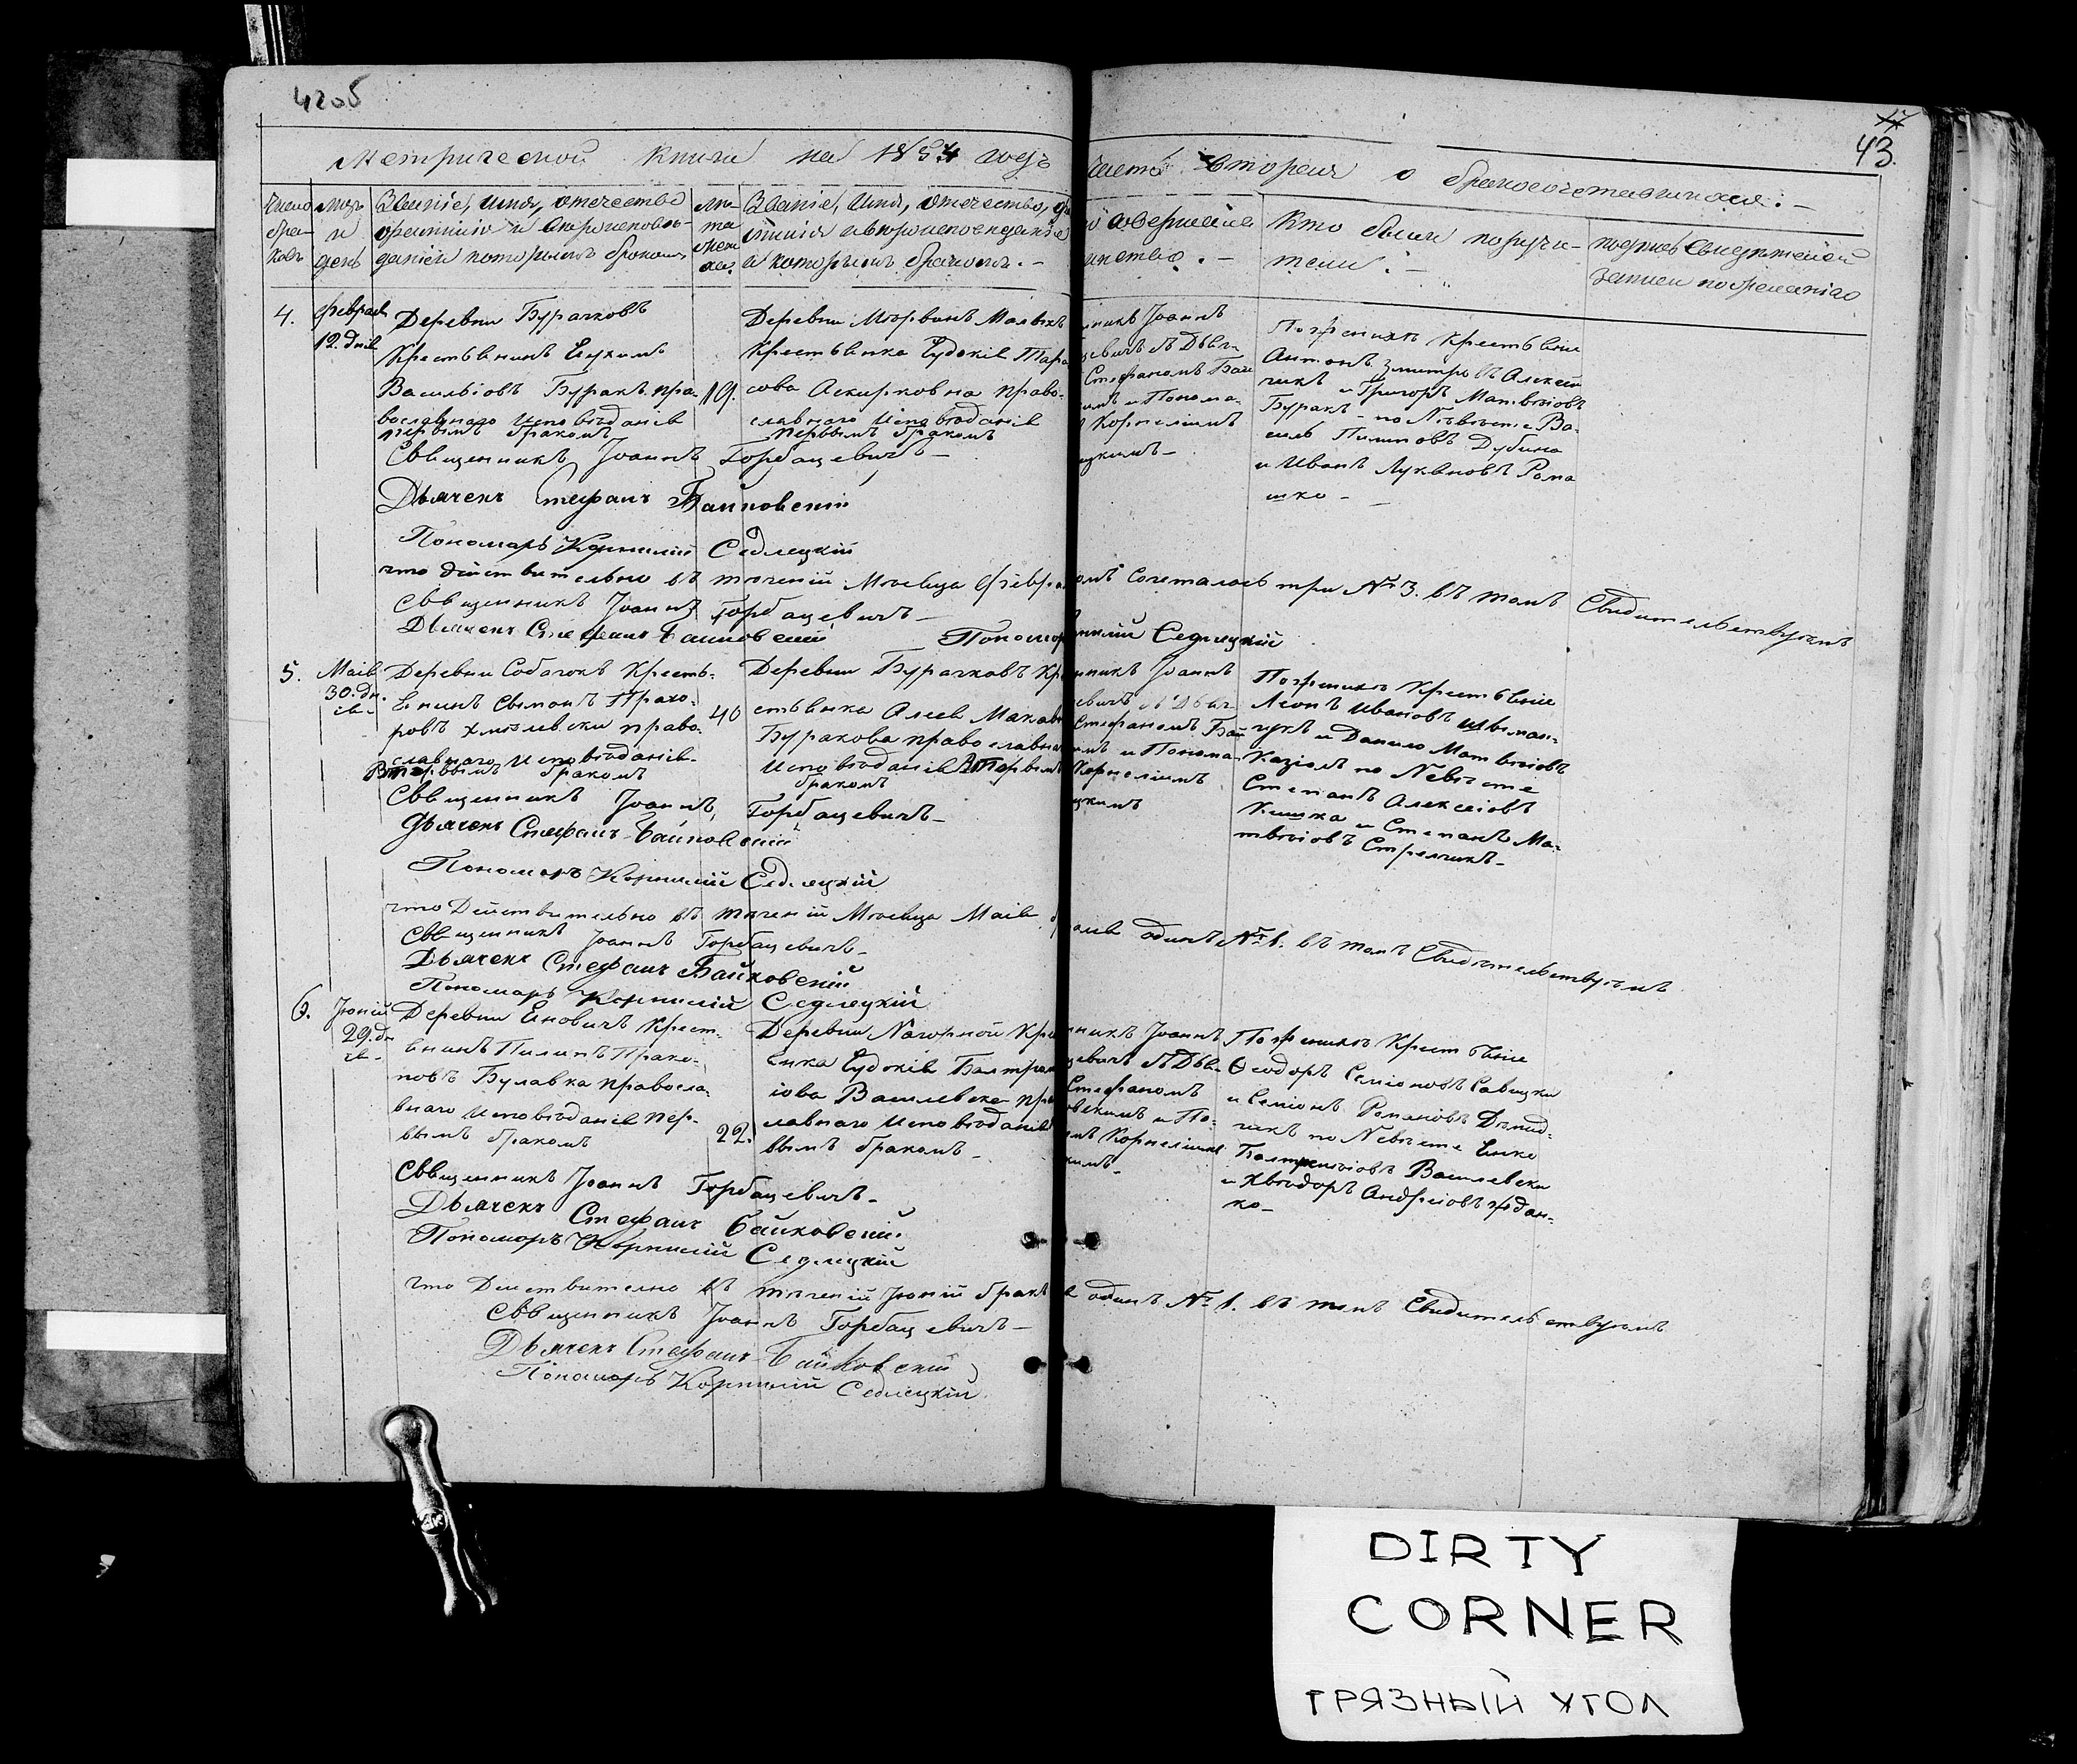 4205
43.
Метрической Книги на 1854 годъ
часть вторая о бракосочетавшихся: –
Число бра- ковъ
мцъ и день
Званіе, имя, отчество
фамилію и вѣроисповѣ-
даніе и которымъ бракомъ
лѣ- та жен ха.
Званіе, имя, отчество, фа
милія и вѣроисповѣданіе
и которымъ бракомъ. –
совершалъ
инство. –
Кто были поручи-
тели. –
подпись свидѣтелей
записи по желанію
4.
Февраля
12. дня
Деревни Бурачковъ
Крестьянинъ Евхимъ
Васильіовъ Буракъ пра-
вославнаго исповѣданія
первымъ бракомъ
19.
Деревни
Крестьянка Евдокія Тара
сова Аскирковна право-
славнаго исповѣданія
первымъ бракомъ
нникъ Іоаннъ
цевичъ съ Дьяч-
Стефаномъ Бай
имъ и Понома-
Корнеліимъ
цкимъ –
По женихѣ Крестьяне
Антонъ Алексѣй
чикъ и Григоръ Матвѣіовъ
Буракъ – по Невѣсте Ва-
силь Пилиповъ Дубина
и Иванъ Лукьяновъ Рома
шко –
Священникъ Іоаннъ Горбацевичъ –
Дьячекъ Стефанъ Байковскій
Пономарь Корнилій Седлецкій
что действительно въ теченій Мѣсяца Февра
омъ Сочеталось три № 3. въ томъ Свидительствуемъ
Священникъ Іоаннъ Горбацевичъ –
Дьячекъ Стефанъ Байковскій Пономар
нилій Седлецкій
5.
Маія
30. дн.
ія –
Деревни Собачокъ Кресть-
янинъ Сымонъ Прохо-
ровъ Хмѣлевски право-
славнаго исповѣданія
Вторымъ бракомъ
40
Деревни Бурачковъ Кре
стьянка Алена
Буракова православна
исповѣданія Вторымъ
бракомъ
нникъ Іоаннъ
цевичъ съ Дьяч-
Стефаномъ Бай
имъ и Понома-
Корнеліимъ
цкимъ
По женихѣ Крестьяне
Леонъ Ивановъ
чукъ и Данило Матвѣіовъ
Казіолъ по Невѣсте
Степанъ Алексеіовъ
Кишка и Степанъ Ма-
твѣіовъ Стрельчикъ –
Священникъ Іоаннъ Горбацевичъ –
Дьячекъ Стефанъ Байковскій
Пономарь Корнилій Седлецкій
что Действительно въ теченій Мѣсяца Маія
одинъ № 1. въ томъ Свидѣтельствуемъ
Священникъ Іоаннъ Горбацевичъ –
Дьячекъ Стефанъ Байковскій
Пономарь Корнилій Седлецкій
6.
Іюній
29. дн
ія –
Деревни Еновичъ Крест-
янинъ Пилипъ Проко-
повъ Булавка правосла-
внаго исповѣданія пер-
вымъ бракомъ
22.
Деревни Нагорной Кре
янка Евдокія Балтром
іова Василевска пра
лавнаго исповѣданія
вымъ бракомъ –
нникъ Іоаннъ
цевичъ съ Дья-
Стефаномъ
овскимъ и По-
мъ Корнеліимъ
кимъ –
По женихѣ Крестьяне
Ѳеодоръ Семіоновъ Савицки
и Семіонъ Романовъ
чикъ по Невѣсте Янко
Балтромѣіовъ Василевски
и Хвѣодоръ Андреіовъ Ждан-
ко –
Священникъ Іоаннъ Горбацевичъ –
Дьячекъ Стефанъ Байковскій.
Пономарь Корнилій Седлецкій
что Действително въ теченій Іюній бракъ
одинъ № 1. въ томъ Свидительствуемъ
Священникъ Іоаннъ Горбацевичъ –
Дьячекъ Стефанъ Байковскій
Пономарь Корнилій Седлецкій
DIRTY
CORNER
ГРЯЗНЫЙ УГОЛ